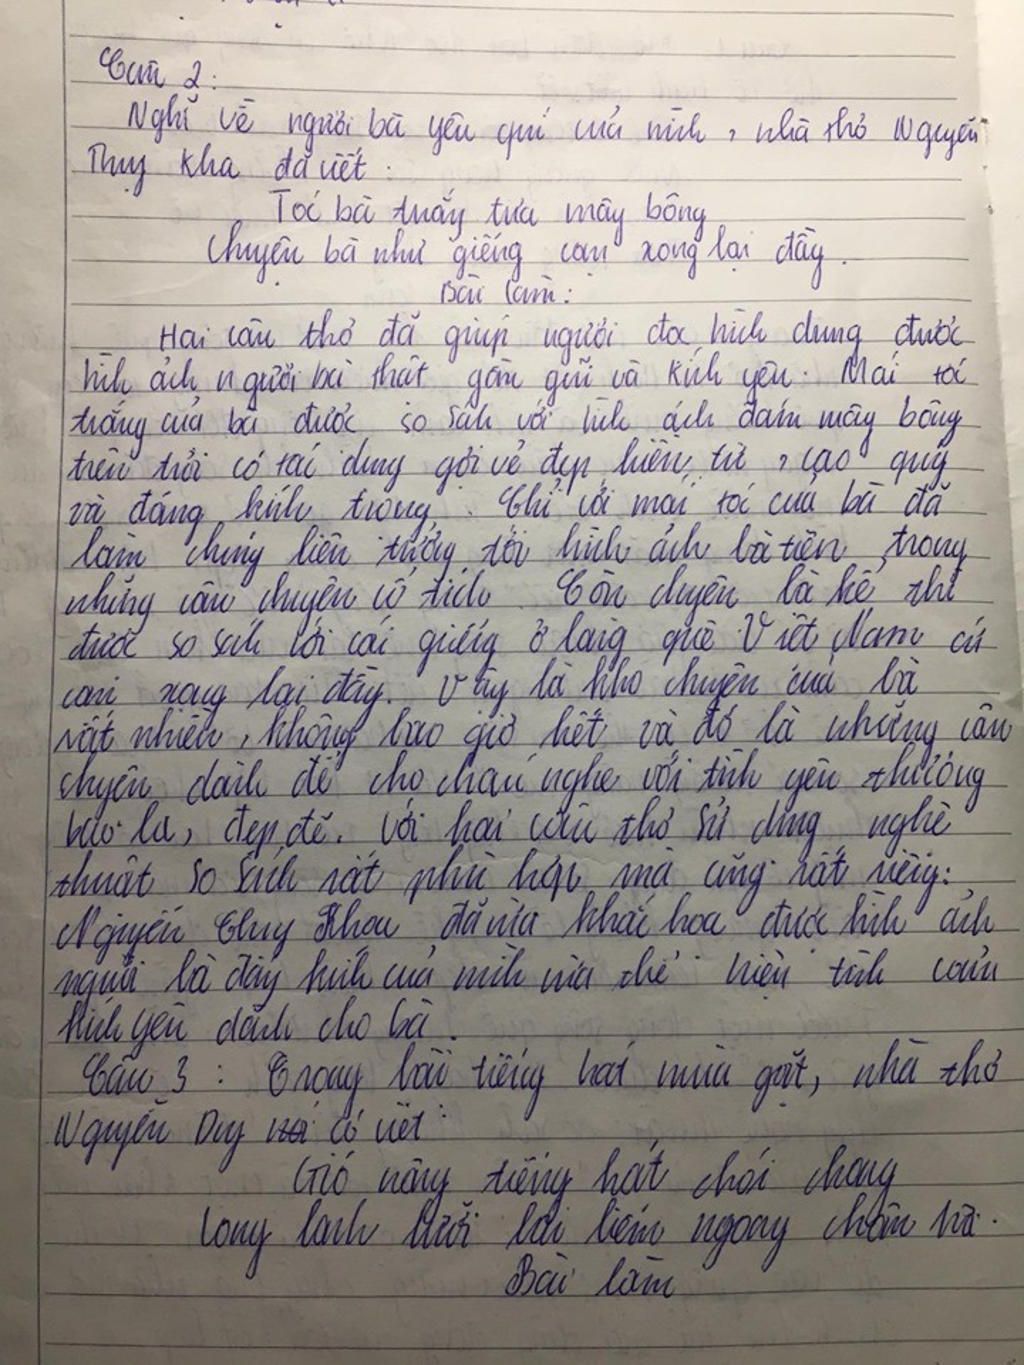 Câu 2:
Nghĩ về người bà yêu quí của mình, nhà thơ Nguyễn
Thụy Kha đã viết:
Tóc bà trắng tựa mây bông
Chuyện bà như giếng cạn xong lại đầy.
Bài làm:
Hai câu thơ đã giúp người đọc hình dung được
hình ảnh người bà thật gần gũi và kính yêu. Mái tóc
trắng của bà được so sánh với hình ảnh đám mây bông
trên trời có tác dụng gợi vẻ đẹp hiền từ, cao quý
và đáng kính trọng. Chỉ với mái tóc của bà đã
làm chúng liên tưởng tới hình ảnh bà tiên trong
những câu chuyện cổ tích. Còn chuyện bà kể thì
được so sánh với cái giếng ở làng quê Việt Nam cứ
cạn xong lại đầy. Vậy là kho chuyện của bà
rất nhiều, không bao giờ hết và đó là những câu
chuyện dành để cho cháu nghe với tình yêu thương
bao la, đẹp đẽ. Với hai câu thơ sử dụng nghệ
thuật so sánh rất phù hợp mà cũng rất riêng:
Nguyễn Thụy Kha đã vừa khắc họa được hình ảnh
người bà đáy kính của mình vừa thể hiện tình cảm
kính yêu dành cho bà.
Câu 3: Trong bài tiếng hát mùa gặt, nhà thơ
Nguyễn Duy có viết:
Gió nâng tiếng hát chói chang
Long lanh lưỡi hái liếm ngang chân trời.
Bài làm